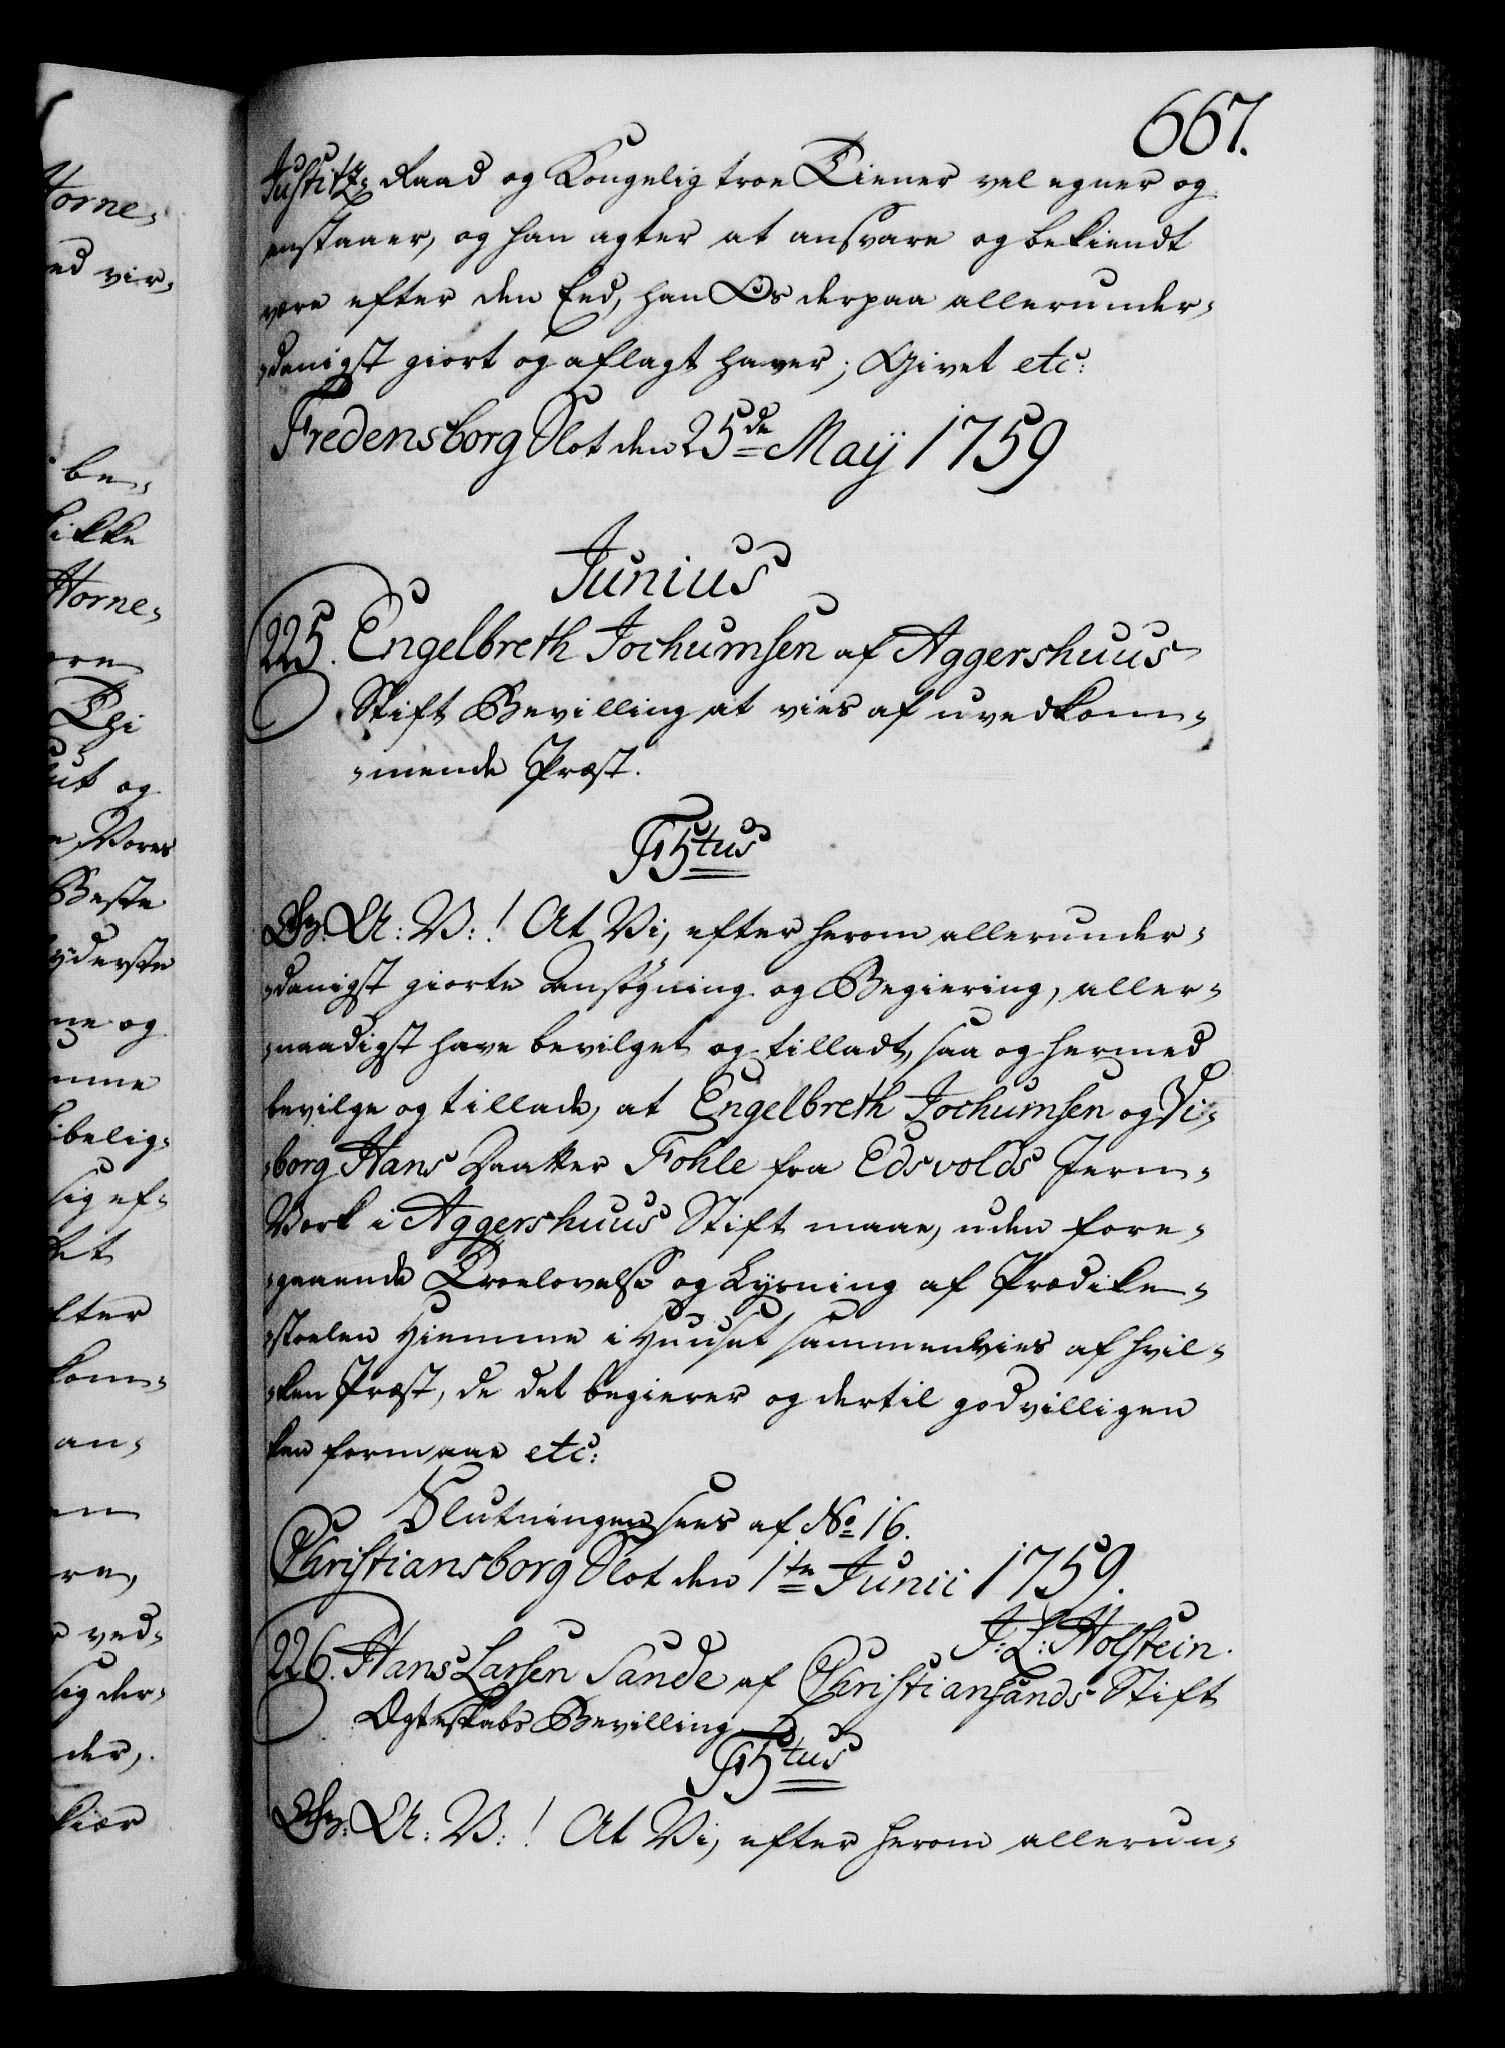 667.
Justitz-Raad og Kongelig troe Tiener vel egner og
anstaaer, og han agter at ansvare og bekiendt
være efter den Eed, han Os derpaa allerunder-
-danigst giort og aflagt haver; Givet etc:
Fredensborg Slot den 25de Maij 1759
Junius
225. Engelbreth Jochumsen af Aggershuus
Stift Bevilling at vies af uvedkom-
-mende Præst.
F5tus
Gr: A: V:! At Vi, efter herom allerunder-
-danigst giorte Ansøgning og Begiering, aller-
-naadigst have bevilget og tilladt, saa og hermed
bevilge og tillade, at Engelbreth Jochumsen og Vi-
-borg Hans Daatter Fohle fra Edsvolds Jern-
Værk i Aggershuus Stift maae, uden fore-
-gaaende Troelovelse og Lysning af Prædike-
-stoelen hiemme i Huuset sammenvies af hvil-
-ken Præst, de det begierer og dertil godvilligen
kan formaae etc:
Slutningen sees af No 16.
Christiansborg Slot den 1te Junii 1759.
J: L: Holstein.
226. Hans Larsen Sande af Christiansands Stift
Ægteskabs Bevilling
F5tus
Gr: A: V:! At Vi, efter herom allerun-